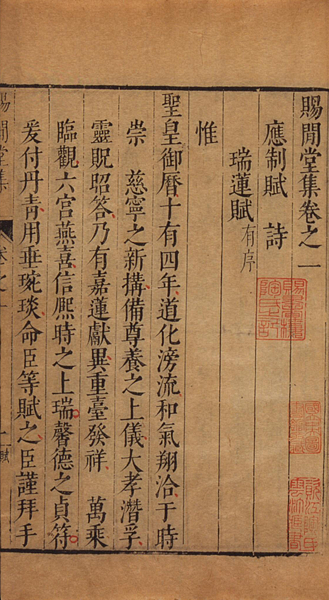 賜閒堂集卷之一
應制賦 詩
瑞蓮賦有序
惟
聖皇御曆十有四年道化滂流和氣翔洽于時
崇 慈寧之新搆備尊養之上儀大孝潛孚
靈貺昭答乃有嘉蓮獻異重臺發祥 萬乘
臨觀六宮燕喜信熈時之上瑞馨德之貞符
爰付丹靑用垂琬琰命臣等賦之臣謹拜手